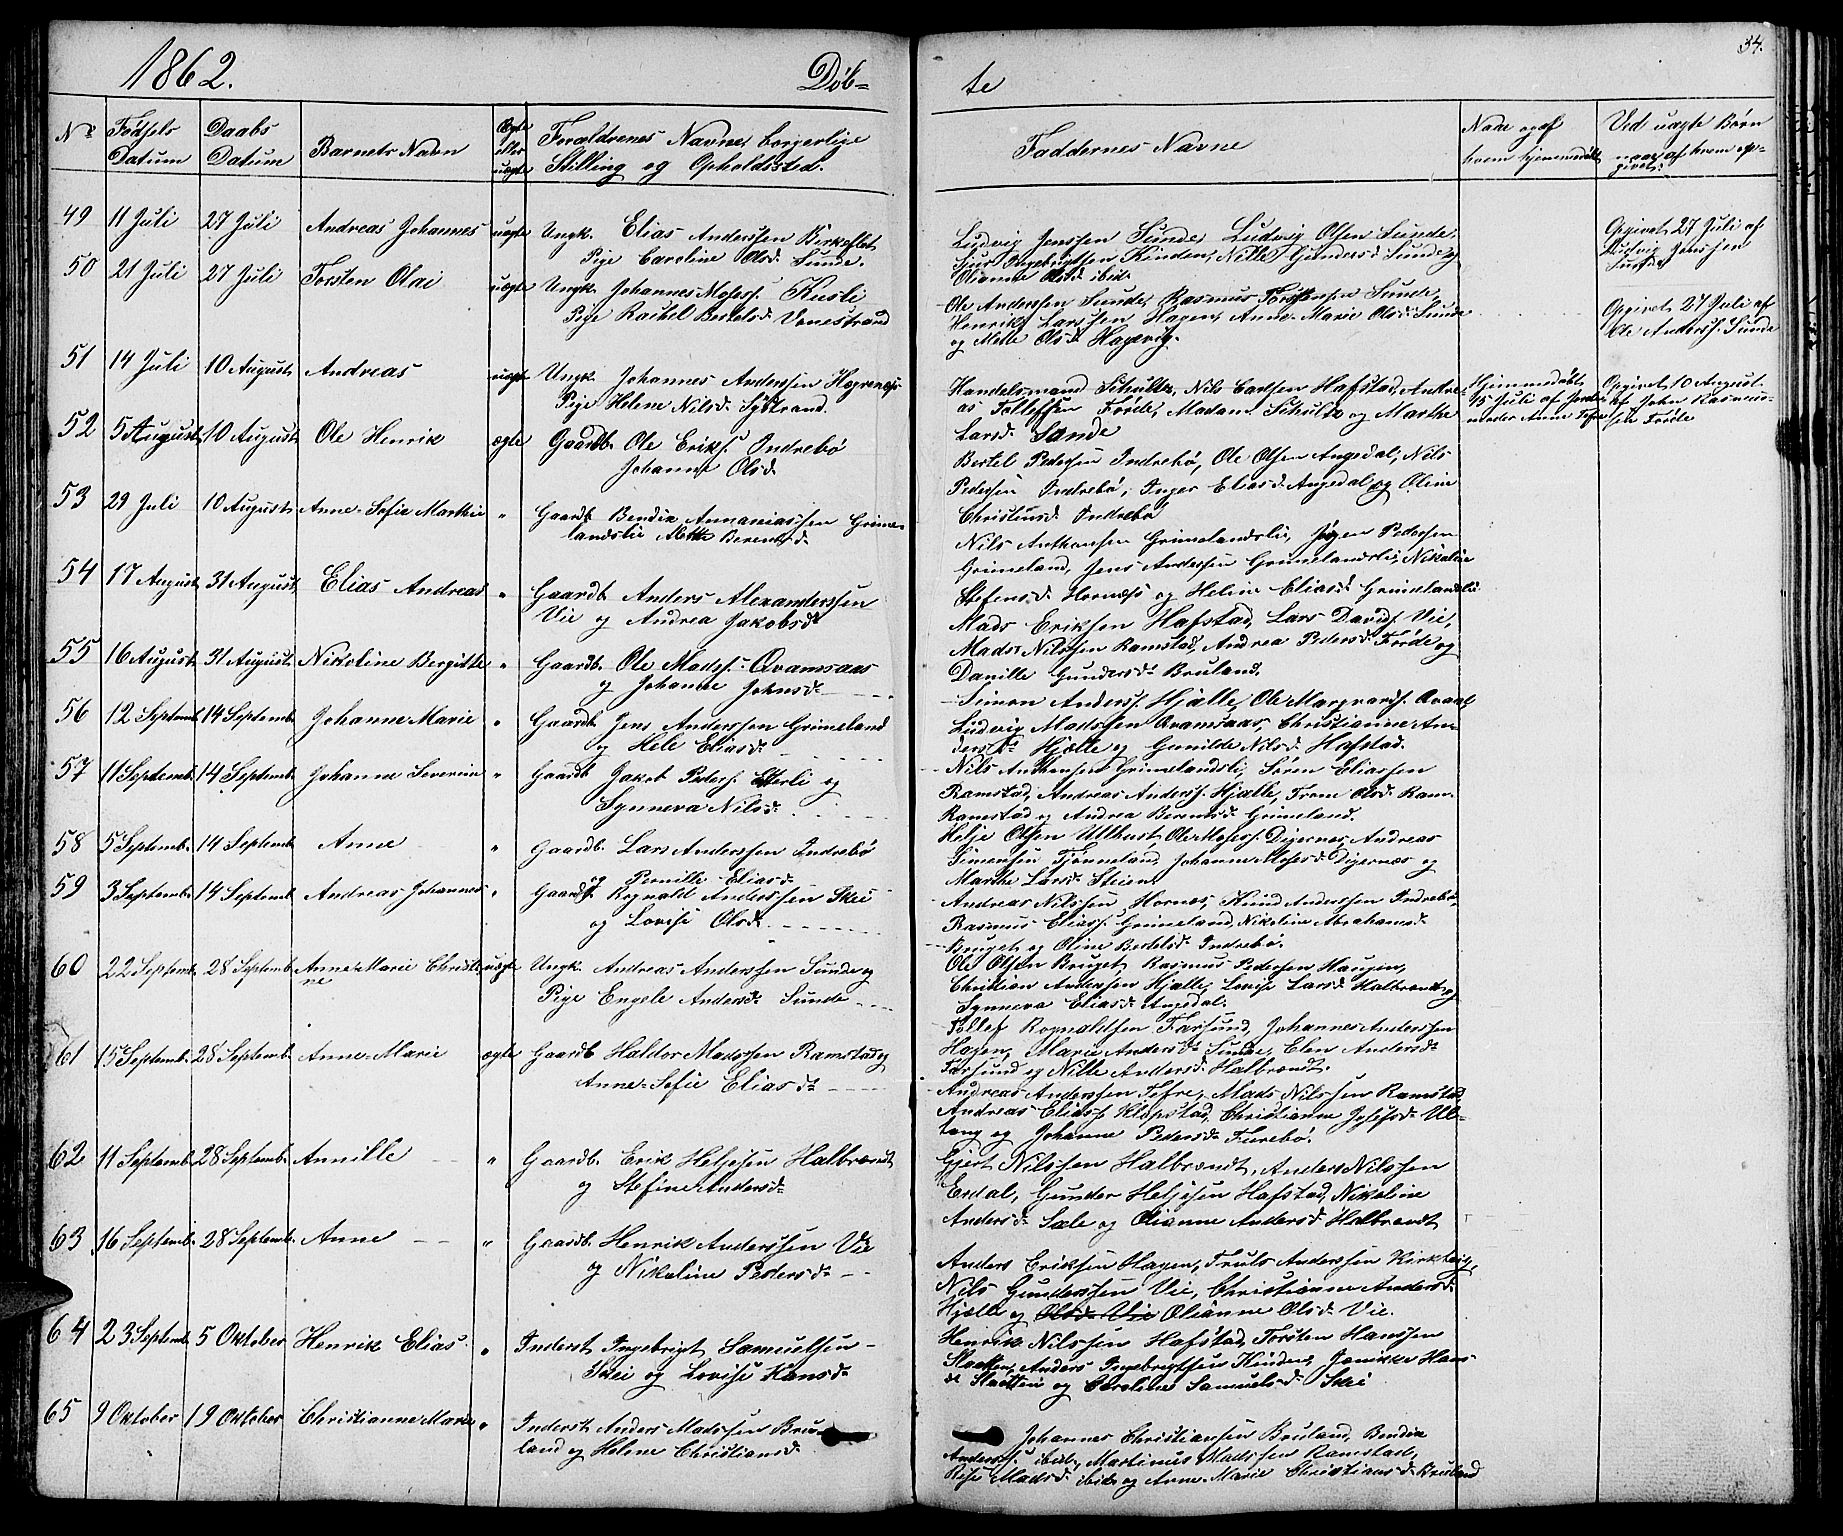 34.
1862.
Døb=
te
No
Fødsels
Datum
Daabs
Datum
Barnets Navn
Ægte
eller
uægte
Forældrenes Navne, borgerlige
Stilling og Opholdssted.
Faddernes Navne
Naar og af
hvem hjemmedøbt
Ved uægte Børn
naar af hvem op=
givet.
49 11 Juli 27 Juli Andreas Johannes uægte Ungk. Elias Anderssen Birkeflet
Pige Caroline Olsd. Sunde.
Ludvig Jenssen Sunde, Ludvig Olsen Sunde,
Sjur Ingebrigtsen Kinden, Nille Gundersd. Sunde og
Olianne Olsd. ibid.
Opgivet 27 Juli af
Ludvig Jenssen
Sunde
50 21 Juli 27 Juli Torsten Olai uægte Ungk. Johannes Moses. Kusli
Pige Rachel Bertelsd. Vonestrand
Ole Anderssen Sunde, Rasmus Torstensen Sunde,
Henrik Larssen Hagen, Anne-Marie Olsd. Sunde
og Mette Olsd. Hagevig.
Opgivet 27 Juli af
Ole Anderss. Sunde
51 14 Juli 10 August Andreas uægte Ungk. Johannes Anderssen
Pige Helene Nilsd. Systrand.
Handelsmand Schultz, Nils Carlsen Hafstad, Andre=
as Tollefsen Førde, Madam Schultz og Marthe
Larsd. Sunde
Hjemmedøbt
15 Juli af Jorde=
moder Anne Tefre
Opgivet 10 August
af John Rasmus=
sen Førde
52 5 August 10 August Ole Henrik ægte Gaardb. Ole Eriks. Indrebø
Johanne Olsd.
Bertel Pedersen Indrebø, Ole Olsen Angedal, Nils
Pedersen Indrebø, Inger Eliasd. Angedal og Oline
Christensd. Indrebø
53 29 Juli 10 August Anne-Sofie Marthie " Gaardb. Bendix Annaniassen Grime=
landslie Mette Berentsd.
Nils Anthonsen Grimelandslie, Jørgen Pedersen
Grimeland, Jens Anderssen Grimelandslie, Nikoline
Stefensd. Hornæss og Heline Eliasd. Grimelandslie
54 17 August 31 August Elias Andreas " Gaardb. Anders Alexanderssen
Vie og Andrea Jakobsd.
Mads Eriksen Hafstad, Lars Davids. Vie,
Mads Nilssen Ramstad, Andrea Pedersd. Førde og
Danille Gundersd. Bruland.
55 16 August 31 August Nikoline Bergitte " Gaardb. Ole Madss. Qvamsaas
og Johanne Johnsd.
Simon Anderss. Hjelle, Ole Margvards. Qvaal
Ludvig Madssen Qvamsaas, Christianne An=
dersd. Hjelle og Gunilde Nilsd. Hafstad.
56 12 Septemb. 14 Septemb. Johanne Marie " Gaardb. Jens Anderssen Grimeland
og Hele Eliasd.
Nils Anthonsen Grimelandsli, Søren Eliassen
Ramstad, Andreas Anderss. Hjelle, Trone Olsd. Ram=
Ramstad og Andrea Berentsd. Grimeland.
57 11 Septemb. 14 Septemb. Johanne Severine " Gaardb. Jakob Peders. Etterli og
Synneva Nilsd.
Helje Olsen Ullhust, Ole Moses. Digernes, Andreas
Simensen Tjønneland, Johanne Mosesd. Digernæs og
Marthe Larsd. Steien.
58 5 Septemb. 14 Septemb. Anne " Gaardb. Lars Anderssen Indrebø
og Pernille Eliasd.
Andreas Nilssen Hornes, Knud Anderssen Indrebø,
Rasmus Eliass. Grimeland, Nikoline Abrahamsd.
Bruget og Oline Bertelsd. Indrebø.
59 3 Septemb. 14 Septemb. Andreas Johannes " Gaardb. Rognald Anderssen Skei
og Lovise Olsd.
Ole Olsen Bruget, Rasmus Pedersen Haugen,
Christian Andersen Hjelle, Lovise Larsd. Halbrendt og
Synneva Eliasd. Angedal.
60 22 Septemb. 28 Septemb. Anne Marie Christia
ne uægte Ungk. Andreas Anderssen Sunde og
Pige Engele Andersd. Sunde
Tollef Rognaldsen Farsund, Johannes Anderssen
Hagen, Marie Andersd. Sunde, Elen Andersd.
Farsund og Nille Andersd. Halbrændt.
61 15 Septemb. 28 Septemb. Anne-Marie ægte Gaardb. Haldor Madssen Ramstad og
Anne-Sofie Eliasd.
Andreas Anderssen Tefre, Mads Nilssen Ramstad
Andreas Eliass. Klopstad, Christianne Josefsd. Ul=
tang og Johanne Pedersd. Furebø.
62 11 Septemb. 28 Septemb. Annille " Gaardb. Erik Heljesen Halbrændt
og Stefine Andersd.
Gjert Nilssen Halbrændt, Anders Nilssen
Erdal, Gunder Heljesen Hafstad, Nikoline
Andersd. Sæle og Olianne Andersd. Halbrændt
63 16 Septemb. 28 Septemb. Anne " Gaardb. Henrik Anderssen Vie
og Nikoline Pedersd.
Anders Eriksen Hagen, Truls Anderssen Kirkteig,
Nils Gunderssen Vie, Christianne Andersd.
Hjelle og Olsd. Vie Olianne Olsd. Vie.
64 23 Septemb. 5 Oktober Henrik Elias " Inderst Ingebrigt Samuelsen
Skei og Lovise Hansd.
Henrik Nilssen Hafstad, Torsten Hanssen
Slaatten, Anders Ingebrigtsen Kinden, Janikke Hans=
d. Slaatten og Caroline Samuelsd. Skei
65 9 Oktober 19 Oktober Christianne Marie " Inderst Anders Madssen Bru=
land og Helene Christiansd.
Johannes Christiansen Bruland, Bendix
Anderss. ibid., Martinus Madssen Ramstad,
Madsd. ibid. og Anne-Marie Christiansd. Bruland